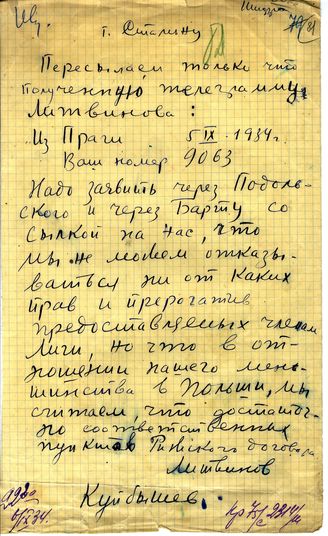 Шифром
т. Сталину
Пересылаем только что
полученную телеграмму
Литвинова:
Из Праги 5 IX. 1934г.
Ваш номер 9063
Надо заявить через Подоль-
ского и через Барту со
сылкой на нас, что
мы не можем отказы-
ваться ни от каких
прав и прерогатив
предоставляемых членам
Лиги, но что в от-
ношении нашего мень-
шинства в Польши, мы
считаем, что достаточ-
но соответственных
пунктов Рижского договора
Литвинов
Куйбышев.